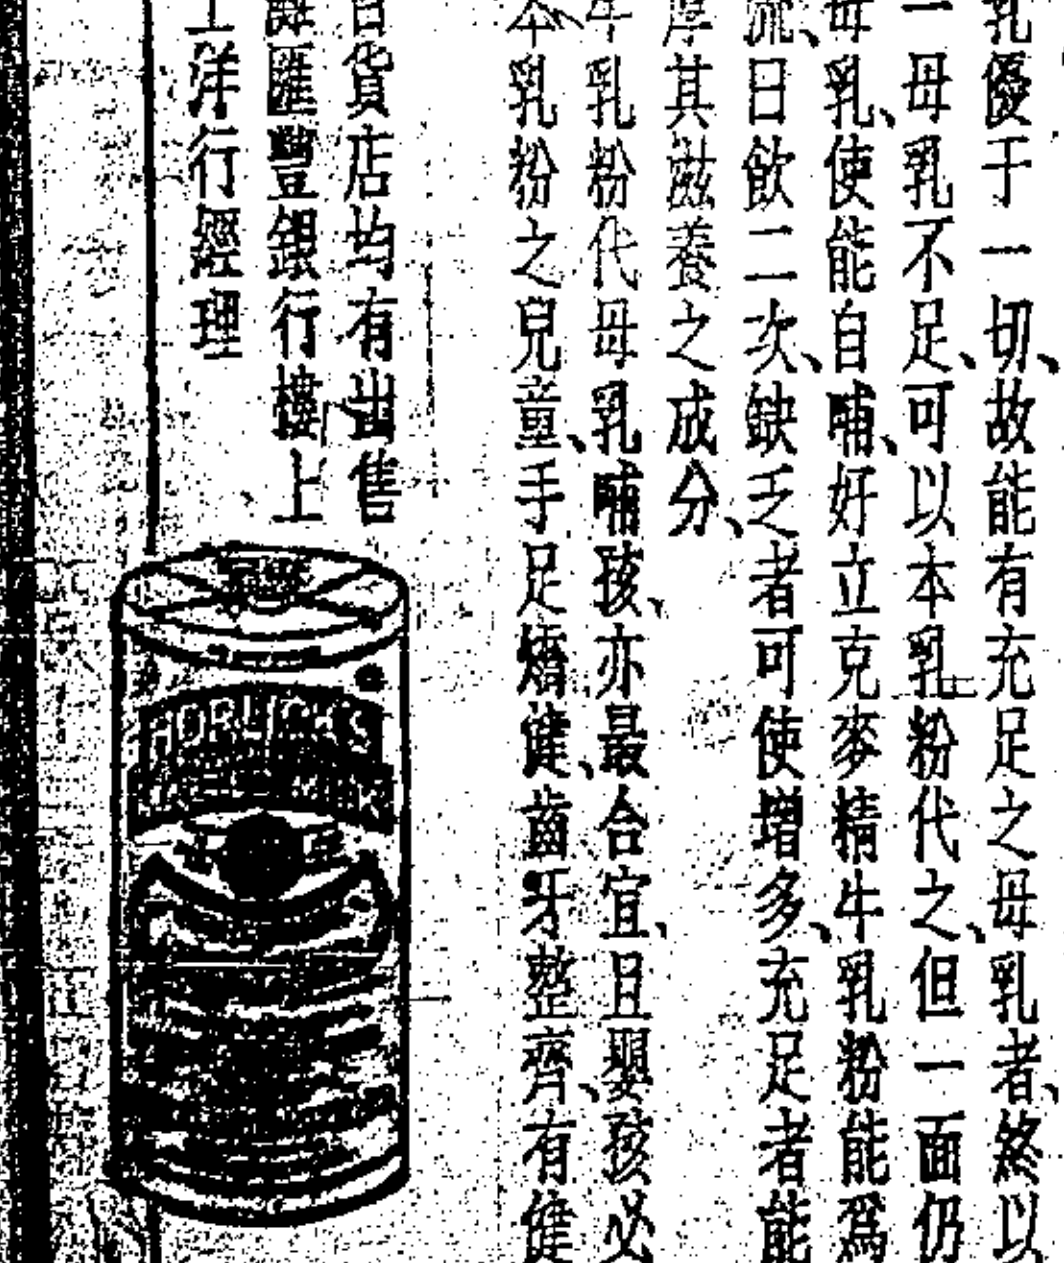 乳優于一切、故能有充足之母乳者、終以
一母乳不足、可以本乳粉代之、但一面仍
母乳、使能自哺、好立克麥精牛乳粉能爲
流、日飲二次、缺乏者可使增多、充足者能
厚其滋養之成分、
牛乳粉代母乳哺孩、亦最合宜、且嬰孩必
本乳粉之兒童、手足矯健、齒牙整齊、有健
百貨店均有出售
匯豐銀行樓上
洋行經理
HORLICK'S
MALTED MILK